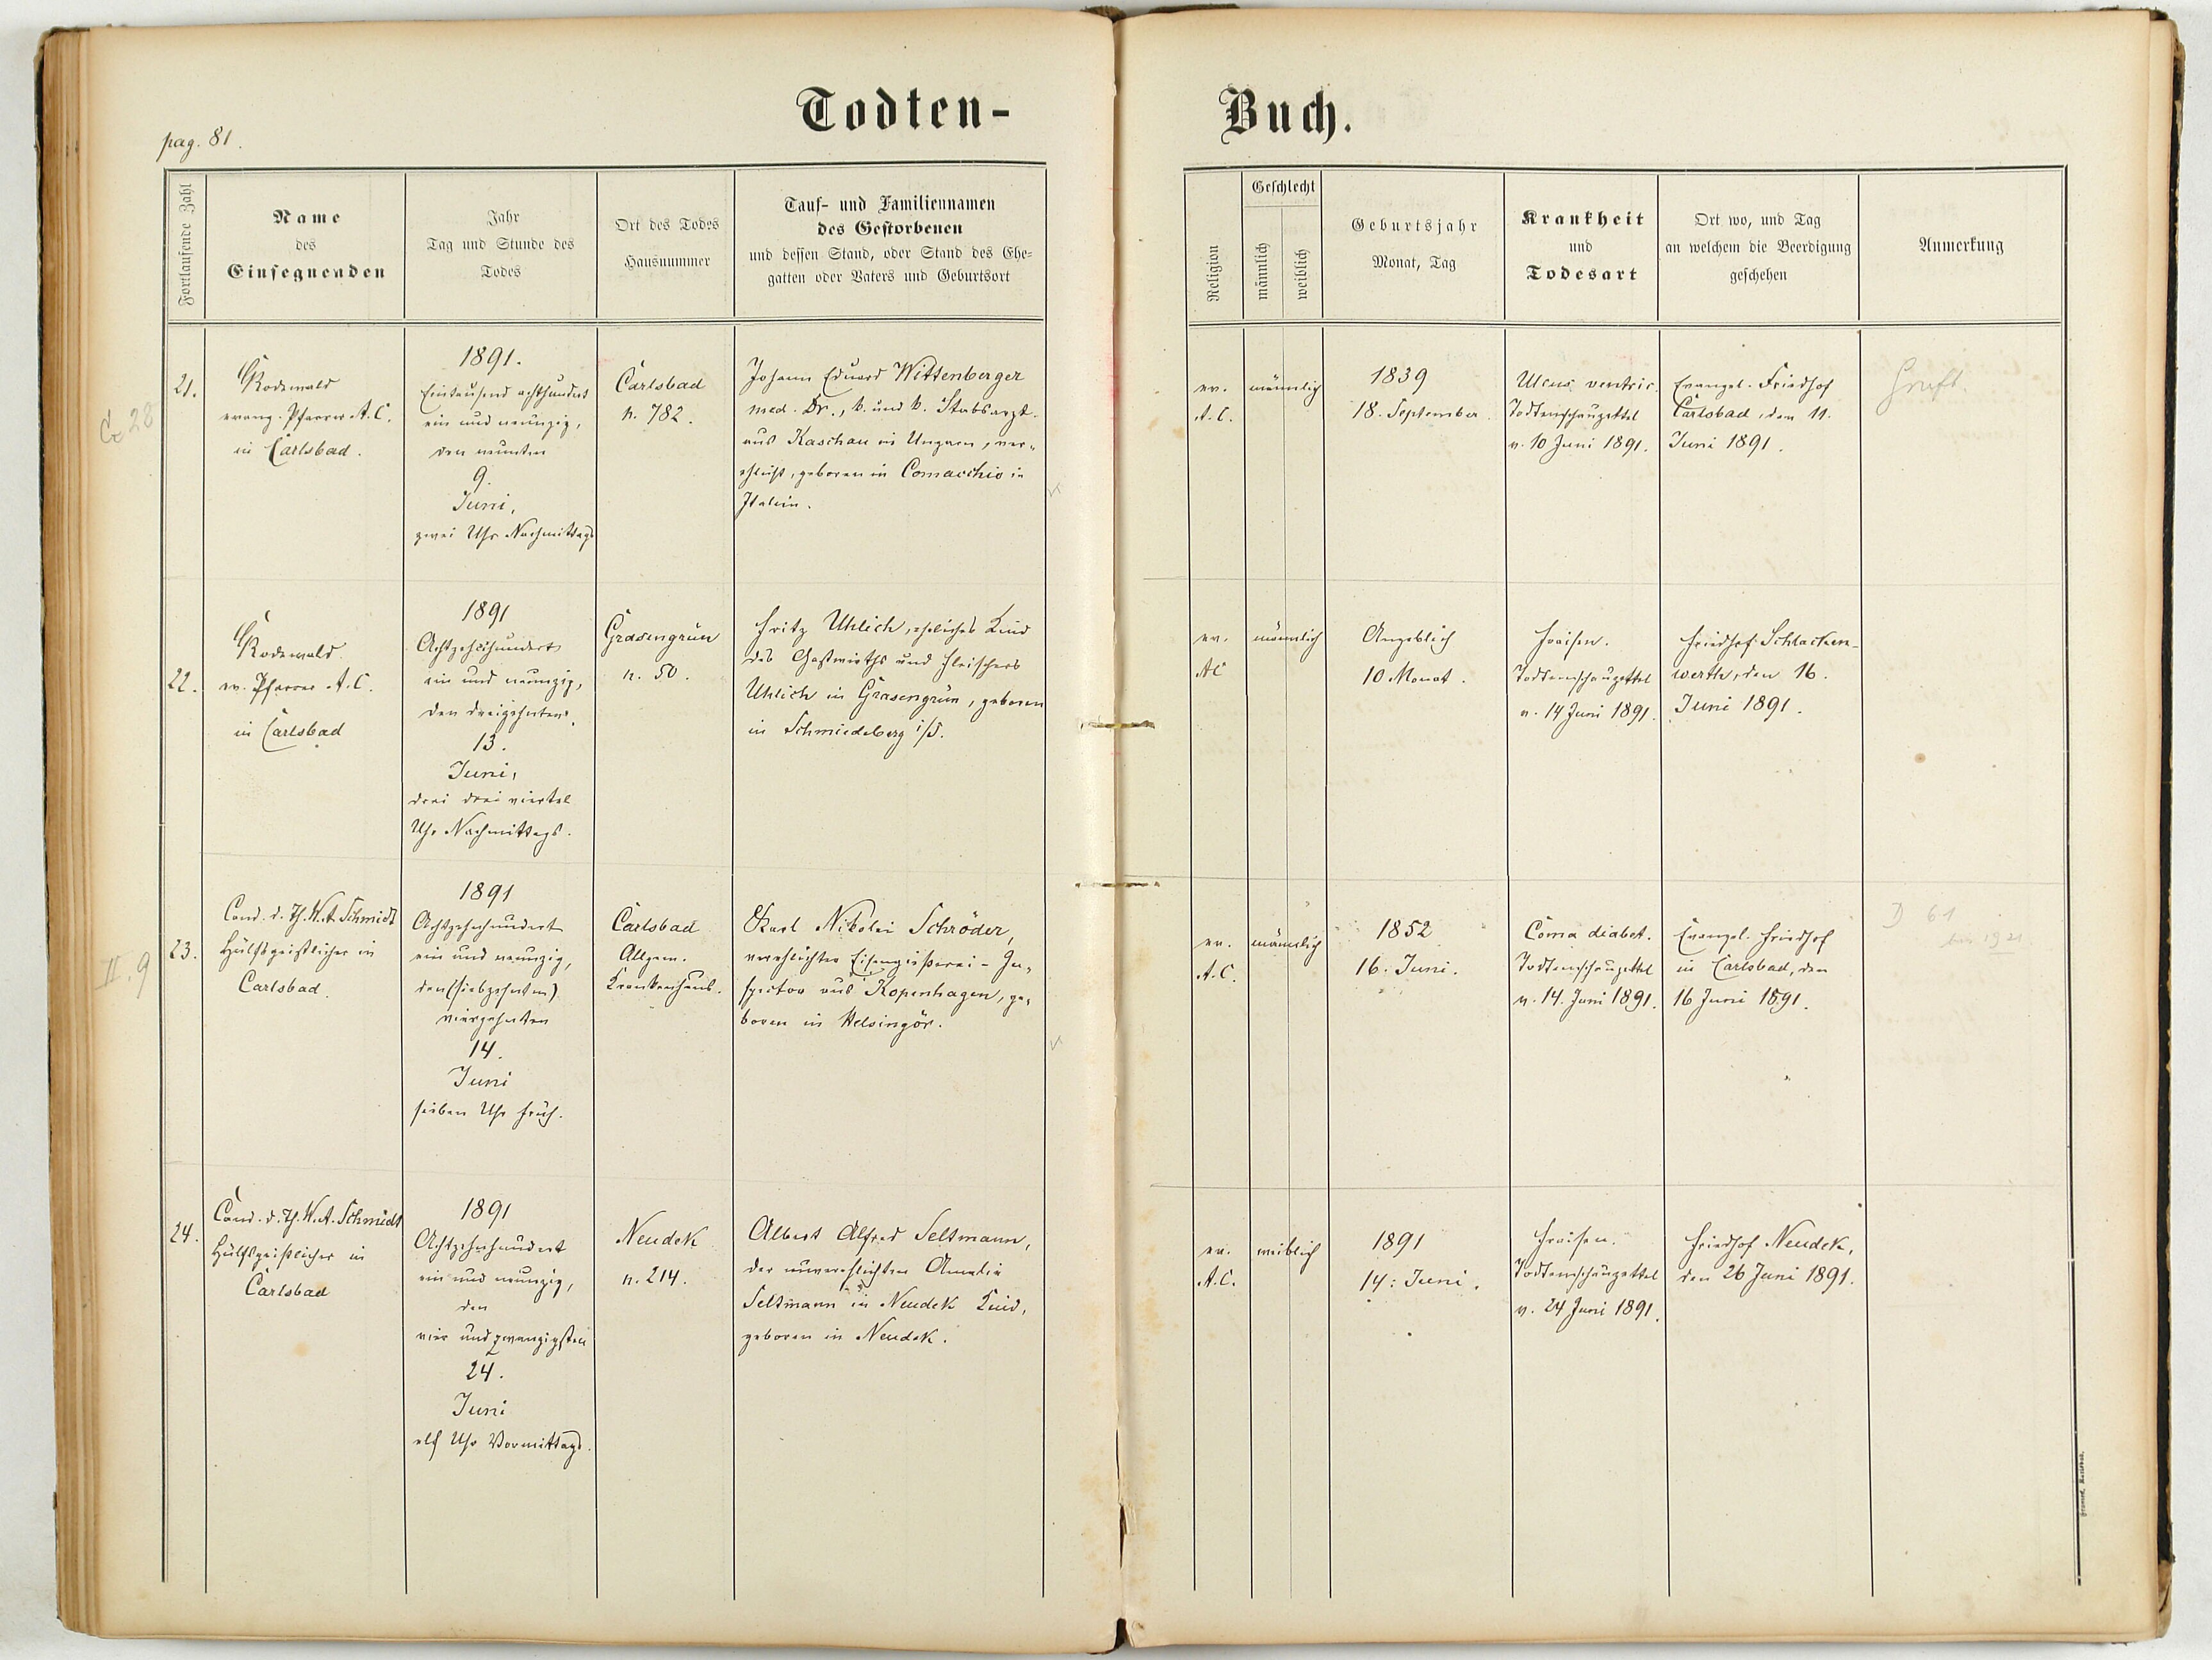 pag. 81.
Todten-
Buch.
Fortlaufende Zahl
Name
des
Einsegnenden
Jahr
Tag und Stunde des
Todes
Ort des Todes
Hausnummer
Tauf- und Familiennamen
des Gestorbenen
und dessen Stand, oder Stand des Ehe-
gatten oder Vaters und Geburtsort
Religion
Geschlecht
männlich
weiblich
Geburtsjahr
Monat, Tag
Krankheit
und
Todesart
Ort wo, und Tag
an welchem die Beerdigung
geschehen
Anmerkung
21.
Rodewald
evang. Pfarrer A. C.
in Carlsbad.
1891.
Eintausend achthundert
ein und neunzig,
den neunten
9.
Juni,
zwei Uhr Nachmittags
Carlsbad
n. 782.
Johann Eduard Wittenberger
med. Dr., k. und k. Stabsarzt
aus Kaschau in Ungarn, ver-
ehlicht, geboren in Comacchio in
Italien.
ev.
A. C.
männlich
1839
18. September.
Ulcus ventric.
Todtenschauzettel
v. 10 Juni 1891.
Evangel. Friedhof
Carlsbad, den 11.
Juni 1891.
Gruft.
22.
Rodewald.
ev. Pfarrer A. C.
in Carlsbad
1891
Achtzehnhundert
ein und neunzig,
den dreizehnten,
13.
Juni,
drei drei viertel
Uhr Nachmittags.
Grasengrün
n. 50.
Fritz Uhlich, eheliches Kind
des Gastwirths und Fleischers
Uhlich in Grasengrün, geboren
in Schmiedeberg i/S.
ev.
AC
männlich
Angeblich
10 Monat.
Fraisen.
Todtenschauzettel
v. 14 Juni 1891.
Friedhof Schlacken-
werth, den 16.
Juni 1891.
II. 9
23.
Cand. d. Th. W. A. Schmidt
Hülfsgeistlicher in
Carlsbad.
1891
Achtzehnhundert
ein und neunzig,
den (siebzehnten)
vierzehnten
14.
Juni
sieben Uhr früh.
Carlsbad
Allgem.
Krankenhaus.
Karl Nikolai Schröder,
verehlichter Eisengießerei-In-
spector aus Kopenhagen, ge-
boren in Helsingör.
ev.
A. C.
männlich
1852
16. Juni.
Coma diabet.
Todtenschauzettel
v. 14. Juni 1891.
Evangel. Friedhof
in Carlsbad, den
16 Juni 1891.
D 61
bis 1921
24.
Cand. d. Th. W. A. Schmidt
Hülfsgeistlicher in
Carlsbad
1891
Achtzehnhundert
ein und neunzig,
den
vier und zwanzigsten
24.
Juni
elf Uhr Vormittags.
Neudek
n. 214.
Albert Alfred Seltmann,
der unverehlichten Amalie
Seltmann in Neudek Kind,
geboren in Neudek.
ev.
A. C.
weiblich
1891
14. Juni.
Fraisen.
Todtenschauzettel
v. 24 Juni 1891.
Friedhof Neudek,
den 26 Juni 1891.